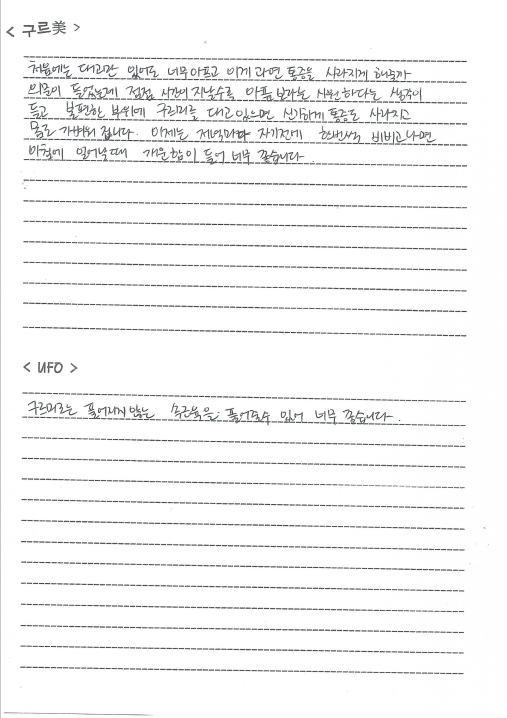 < 구르美 >
처음에는 대고만 있어도 너무 아프고 이게 과연 통증을 사라지게 해줄까
의문이 들었는데 점점 시간이 지날수록 아픔보다는 시원하다는 생각이
들고 불편한 부위에 구르미를 대고 있으면 신기하게 통증도 사라지고
몸도 가벼워 집니다. 이제는 저녁마다 자기전에 한번씩 비비고나면
아침에 일어날때 개운함이 들어 너무 좋습니다.
< UFO >
구르미로는 풀어지지 않는 속근육을 풀어줄수 있어 너무 좋습니다.